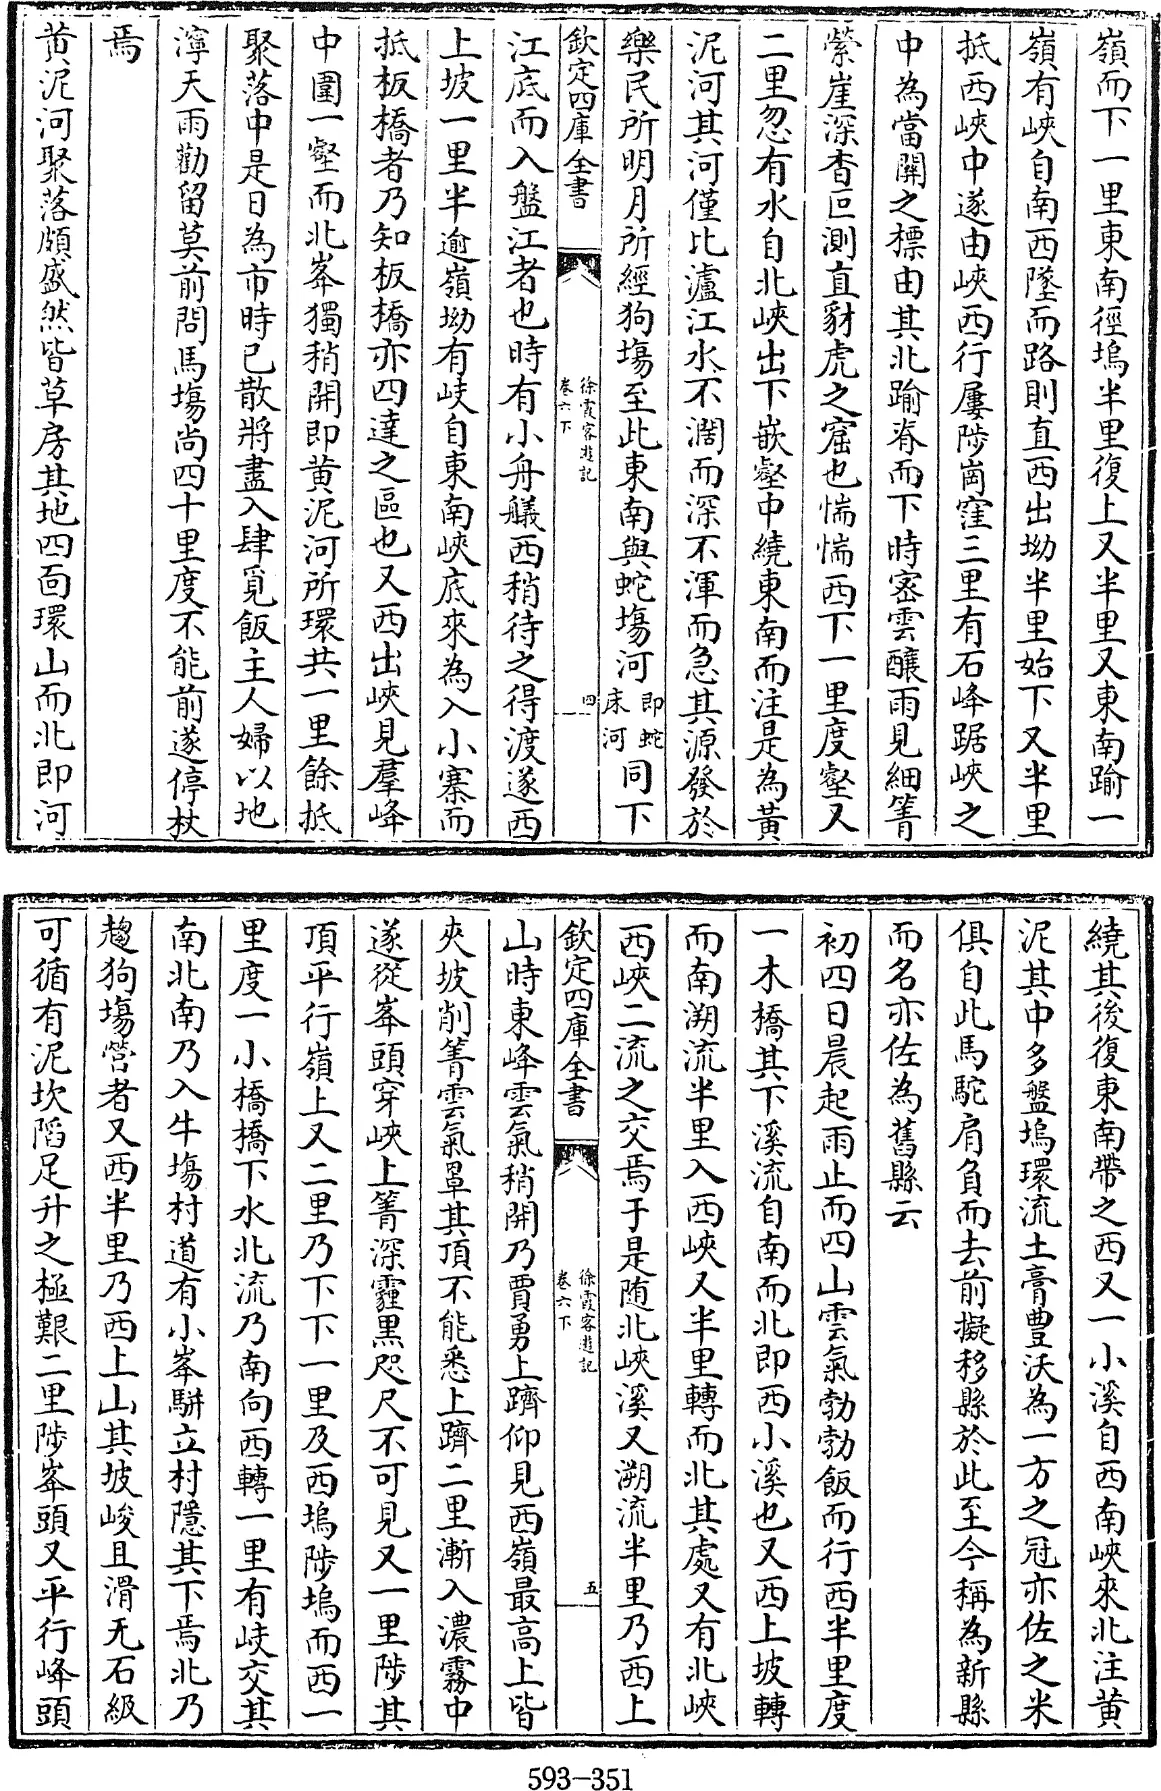 嶺而下一里東南徑塢半里復上又半里又東南踰一
嶺有峽自南西墜而路則直西出坳半里始下又半里
抵西峽中遂由峽西行屢陟崗窪三里有石峰踞峽之
中為當關之標由其北踰脊而下時宻雲釀雨見細箐
縈崖深杳叵測直豺虎之窟也惴惴西下一里度壑又
二里忽有水自北峽出下嵌壑中繞東南而注是為黃
泥河其河僅比瀘江水不濶而深不渾而急其源發於
樂民所明月所經狗塲至此東南與蛇塲河即蛇床河同下
欽定四庫全書
徐霞客遊記
卷六下
四
江底而入盤江者也時有小舟艤西稍待之得渡遂西
上坡一里半逾嶺坳有岐自東南峽底來為入小寨而
抵板橋者乃知板橋亦四達之區也又西出峽見羣峰
中圍一壑而北峯獨稍開即黃泥河所環共一里餘抵
聚落中是日為市時已散將盡入肆覓飯主人婦以地
濘天雨勸留莫前問馬塲尚四十里度不能前遂停杖
焉
黃泥河聚落頗盛然皆草房其地四面環山而北即河
繞其後復東南帶之西又一小溪自西南峽來北注黃
泥其中多盤塢環流土膏豊沃為一方之冠亦佐之米
俱自此馬駝肩負而去前擬移縣於此至今稱為新縣
而名亦佐為舊縣云
初四日晨起雨止而四山雲氣勃勃飯而行西半里度
一木橋其下溪流自南而北即西小溪也又西上坡轉
而南溯流半里入西峽又半里轉而北其處又有北峽
西峽二流之交焉于是随北峽溪又溯流半里乃西上
欽定四庫全書
徐霞客遊記
卷六下
五
山時東峰雲氣稍開乃賈勇上躋仰見西嶺最高上皆
夾坡削箐雲氣罩其頂不能悉上躋二里漸入濃霧中
遂從峯頭穿峽上箐深霾黑咫尺不可見又一里陟其
頂平行嶺上又二里乃下下一里及西塢陟塢而西一
里度一小橋橋下水北流乃南向西轉一里有岐交其
南北南乃入牛塲村道有小峯駢立村隱其下焉北乃
趨狗塲營者又西半里乃西上山其坡峻且滑无石級
可循有泥坎陷足升之極艱二里陟峯頭又平行峰頭
593-351